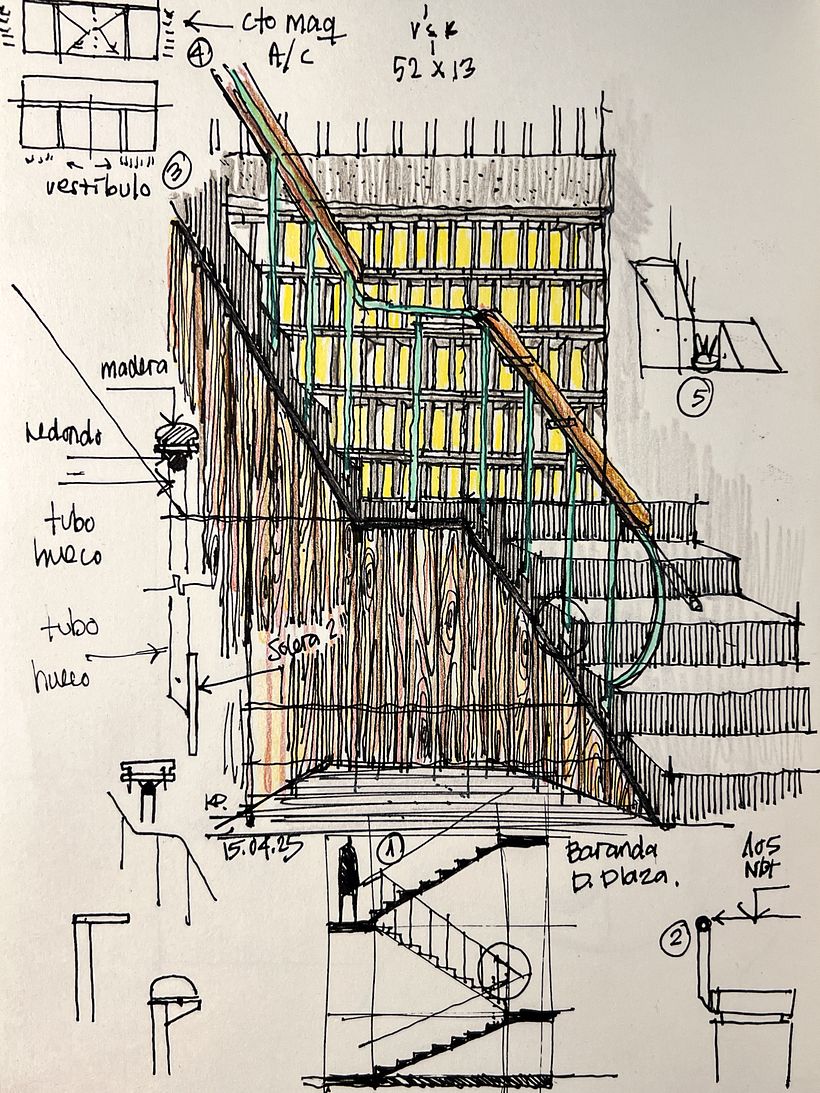 cto maq
A/C
4
52 x 13
3
vestíbulo
madera
redondo
tubo
hueco
tubo
hueco
Solera 2"
5
15.04.25
1
Baranda
D. Plaza.
105
NPT
2